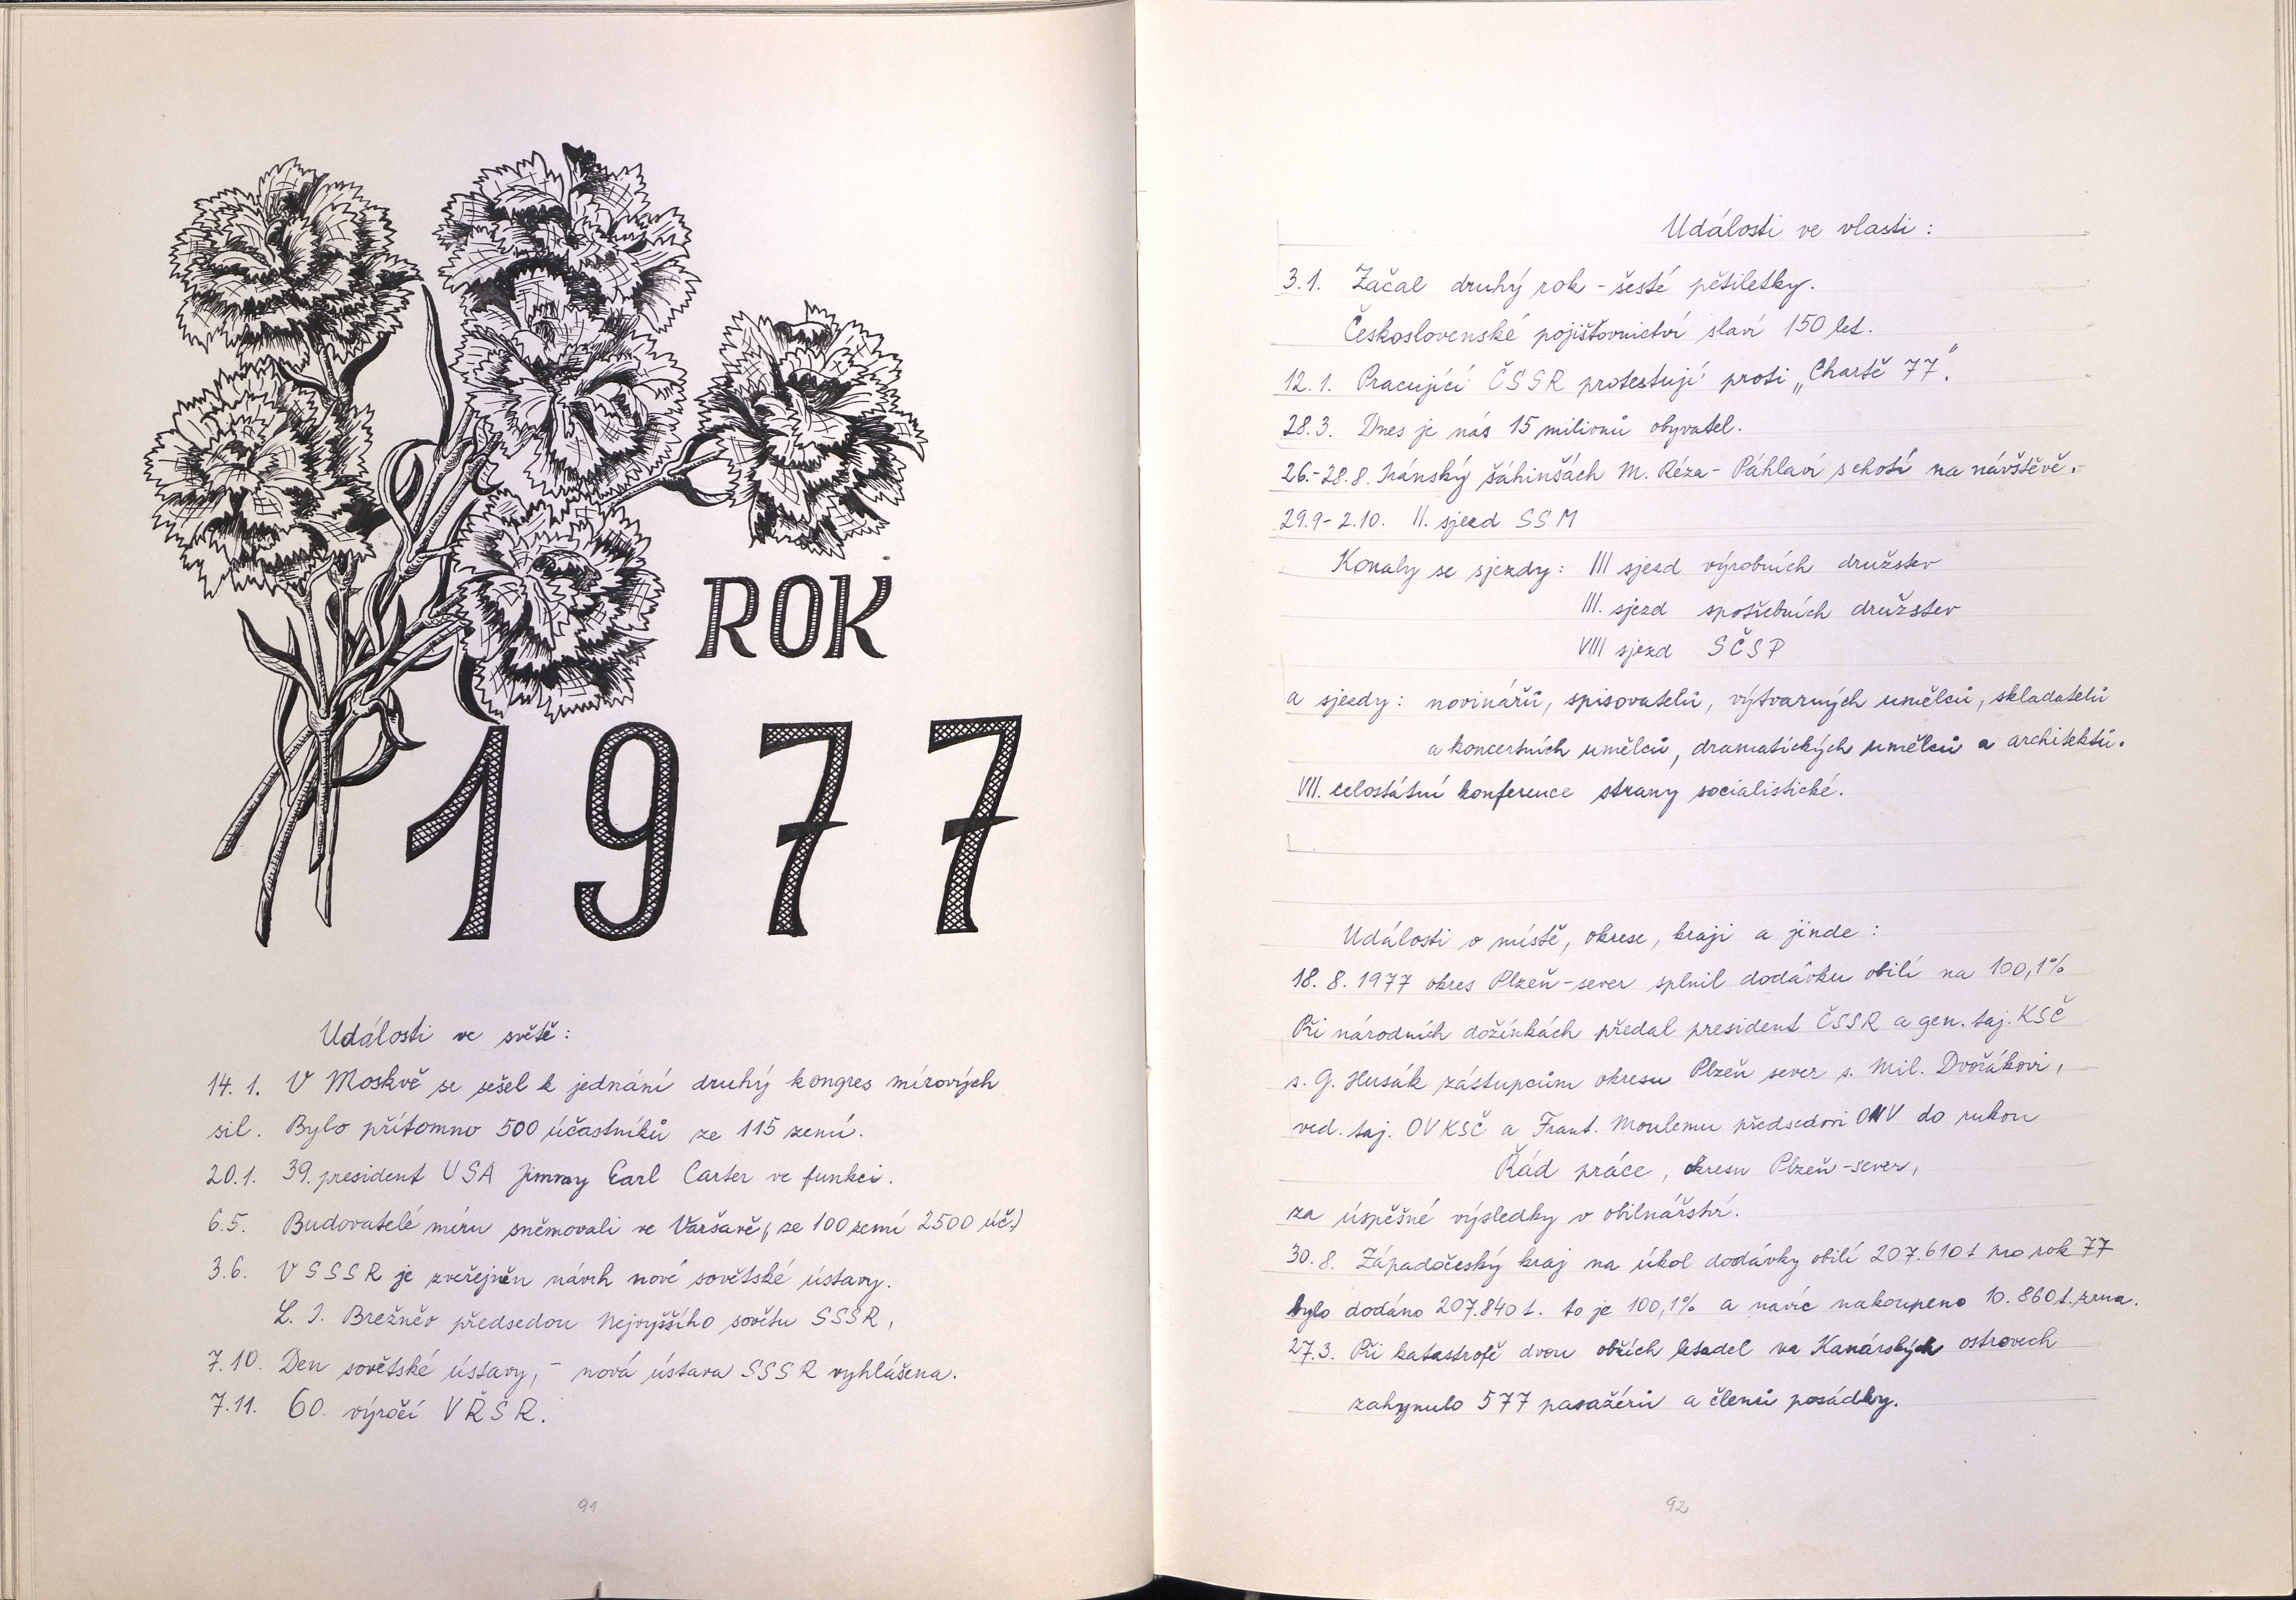 ROK
1977
Události ve světě:
14. 1. V Moskvě se sešel k jednání druhý kongres mírových
sil. Bylo přítomno 500 účastníků ze 115 zemí.
20.1. 39. president USA Jimmy Earl Carter ve funkci.
6.5. Budovatelé míru sněmovali ve Varšavě (ze 100 zemí 2500 úč.)
3.6. V SSSR je zveřejněn návrh nové sovětské ústavy.
L. I. Brežněv předsedou Nejvyššího sovětu SSSR,
7.10. Den sovětské ústavy, - nová ústava SSSR vyhlášena.
7.11. 60. výročí VŘSR.
91
Události ve vlasti:
3.1. Začal druhý rok - šesté pětiletky.
Československé pojišťovnictví slaví 150 let.
12.1. Pracující ČSSR protestují proti „Chartě 77".
28.3. Dnes je nás 15 milionů obyvatel.
26.-28.8. Iránský šáhinšách M. Réza - Páhlaví s chotí na návštěvě.
29.9-2.10. II. sjezd SSM
Konaly se sjezdy: III sjezd výrobních družstev
III. sjezd spotřebních družstev
VIII sjezd SČSP
a sjezdy: novinářů, spisovatelů, výtvarných umělců, skladatelů
a koncertních umělců, dramatických umělců a architektů.
VII. celostátní konference strany socialistické.
Události v místě, okrese, kraji a jinde:
18. 8. 1977 okres Plzeň-sever splnil dodávku obilí na 100,1%
Při národních dožínkách předal president ČSSR a gen. taj. KSČ
s. G. Husák zástupcům okresu Plzeň sever s. Mil. Dvořákovi,
ved. taj. OV KSČ a Frant. Moulemu předsedovi ONV do rukou
Řád práce, okresu Plzeň-sever,
za úspěšné výsledky v obilnářství.
30. 8. Západočeský kraj na úkol dodávky obilí 207.610 t pro rok 77
bylo dodáno 207.840 t. to je 100,1% a navíc nakoupeno 10.860 t. zrna.
27.3. Při katastrofě dvou obřích letadel na Kanárských ostrovech
zahynulo 577 pasažérů a členů posádky.
92